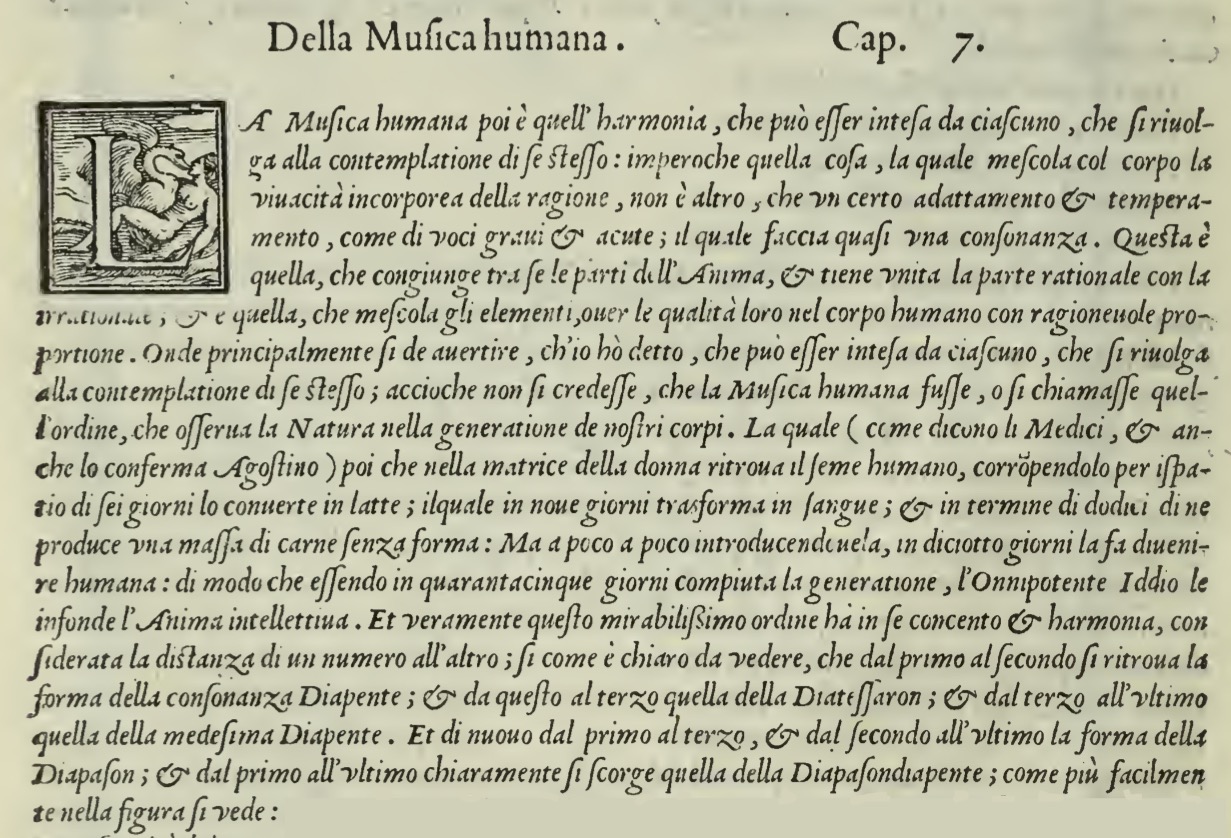 Della Muſica humana. Cap. 7.
LA Muſica humana poi è quell' harmonia, che può eſſer inteſa da ciaſcuno, che ſi riuol-
ga alla contemplatione di ſe ſteſſo: imperoche quella coſa, la quale meſcola col corpo la
viuacità incorporea della ragione, non è altro, che vn certo adattamento & tempera-
mento, come di voci graui & acute; il quale faccia quaſi vna conſonanza. Queſta è
quella, che congiunge tra ſe le parti dell'Anima, & tiene vnita la parte rationale con la
irrationale; & è quella, che meſcola gli elementi, ouer le qualità loro nel corpo humano con ragioneuole pro-
portione. Onde principalmente ſi de auertire, ch'io hò detto, che può eſſer inteſa da ciaſcuno, che ſi riuolga
alla contemplatione di ſe ſteſſo; accioche non ſi credeſſe, che la Muſica humana fuſſe, o ſi chiamaſſe quel-
l'ordine, che oſſerua la Natura nella generatione de noſtri corpi. La quale (come dicono li Medici, & an-
che lo conferma Agoſtino) poi che nella matrice della donna ritroua il ſeme humano, corrõpendolo per iſpa-
tio di ſei giorni lo conuerte in latte; ilquale in noue giorni trasforma in ſangue; & in termine di dodici di ne
produce vna maſſa di carne ſenza forma: Ma a poco a poco introducendouela, in diciotto giorni la fa diueni-
re humana: di modo che eſſendo in quarantacinque giorni compiuta la generatione, l'Onnipotente Iddio le
infonde l'Anima intellettiua. Et veramente queſto mirabiliſsimo ordine hà in ſe concento & harmonia, con
ſiderata la diſtanza di un numero all'altro; ſi come è chiaro da vedere, che dal primo al ſecondo ſi ritroua la
forma della conſonanza Diapente; & da queſto al terzo quella della Diateſſaron; & dal terzo all'vltimo
quella della medeſima Diapente. Et di nuouo dal primo al terzo, & dal ſecondo all'vltimo la forma della
Diapaſon; & dal primo all'vltimo chiaramente ſi ſcorge quella della Diapaſondiapente; come più facilmen
te nella figura ſi vede: